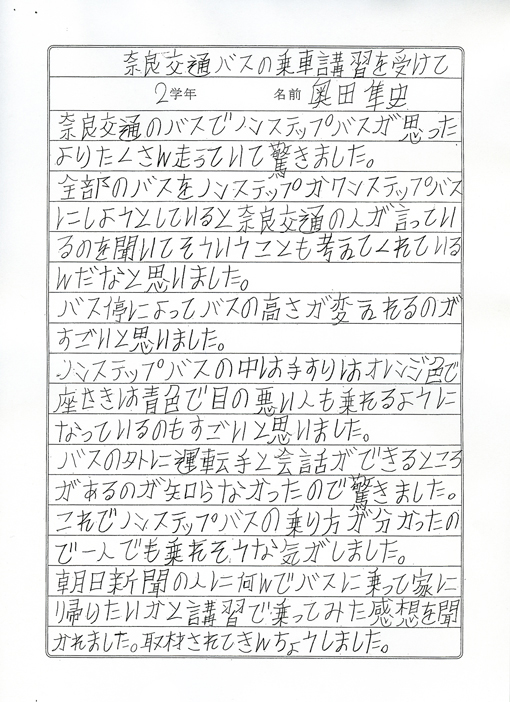 奈良交通バスの乗車講習を受けて
2学年 名前 奥田隼史
奈良交通のバスでノンステップバスが思った
よりたくさん走っていて驚きました。
全部のバスをノンステップかワンステップバス
にしようとしていると奈良交通の人が言ってい
るのを聞いてそういうことも考えてくれている
んだなと思いました。
バス停によってバスの高さが変えれるのが
すごいと思いました。
ノンステップバスの中は手すりはオレンジ色で
座せきは青色で目の悪い人も乗れるように
なっているのもすごいと思いました。
バスの外に運転手と会話ができるところ
があるのが知らなかったので驚きました。
これでノンステップバスの乗り方が分かったの
で一人でも乗れそうな気がしました。
朝日新聞の人に何んでバスに乗って家に
帰りたいかと講習で乗ってみた感想を聞
かれました。取材されてきんちょうしました。